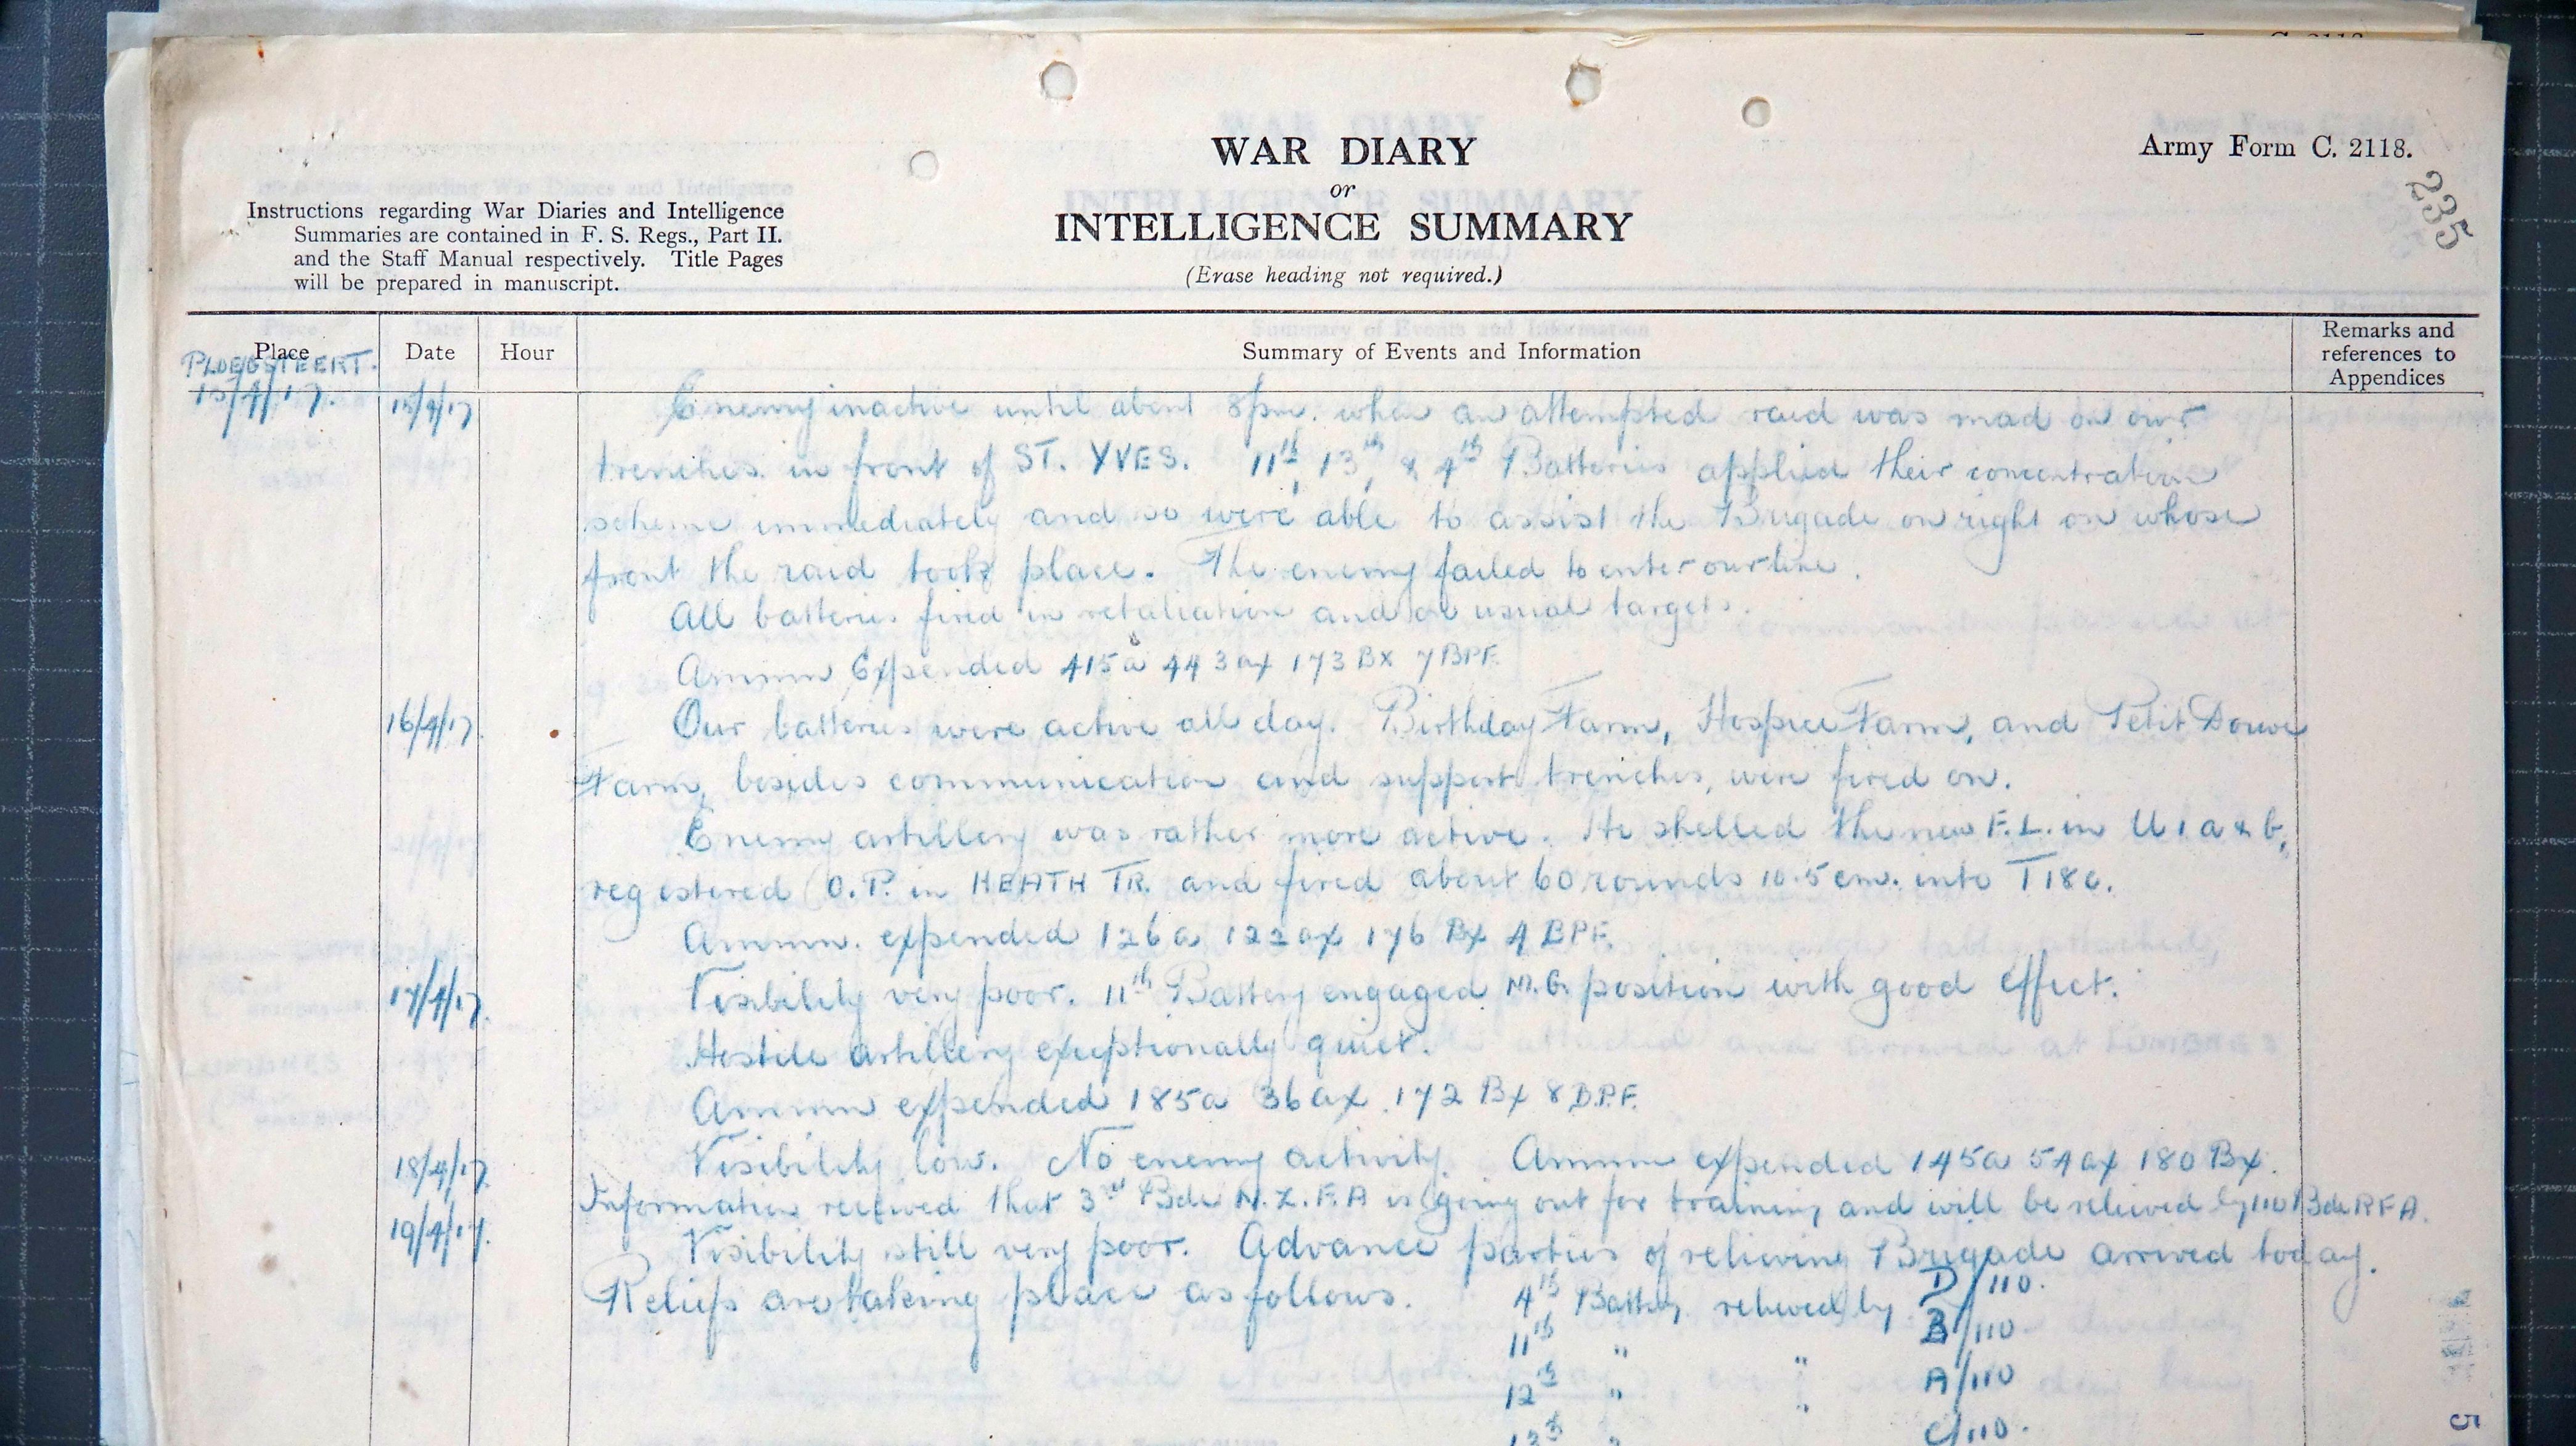 WAR DIARY
Army Form C. 2118.
or
235
INTELLIGENCE SUMMARY
(Erase heading not required.)
Instructions regarding War Diaries and Intelligence
Summaries are contained in F. S. Regs., Part II.
and the Staff Manual respectively. Title Pages
will be prepared in manuscript.
Place Date Hour Summary of Events and Information Remarks and references to Appendices
PLOEGSTEERT.
15/4/17. 15/4/17 Enemy inactive until about 8pm. when an attempted raid was mad on our
trenches in front of ST. YVES. 11th, 13th, & 4th Batteries applied their concentration
scheme immediately and so were able to assist the Brigade on right on whose
front the raid took place. The enemy failed to enter our line.
All batteries fired in retaliation and on usual targets.
Ammn Expended 415a 443ax 173 Bx 7 BPF.
16/4/17 Our batteries were active all day. Birthday Farm, Hospice Farm, and Petit Douve
Farm, besides communication and support trenches, were fired on.
Enemy artillery was rather more active. He shelled the new F.L. in U1 a & b,
regestered O.P. in HEATH TR. and fired about 60 rounds 10.5 cm. into T18c.
Ammn. expended 126a 122ax 176 Bx 4 BPF.
17/4/17. Visibility very poor. 11th Battery engaged M.G. position with good effect.
Hostile artillery exceptionally quiet.
Ammn expended 185a 36ax 172 Bx 8 B.P.F.
18/4/17. Visibility low. No enemy activity. Ammn expended 145a 54ax 180 Bx.
Information received that 3rd Bde N.Z.F.A is going out for training and will be relieved by 110 Bde RFA.
19/4/17. Visibility still very poor. Advance parties of relieving Brigade arrived today.
Reliefs are taking place as follows. 4th Battery relieved by D/110.
11th " " B/110
12th " " A/110
13th " C/110.
5